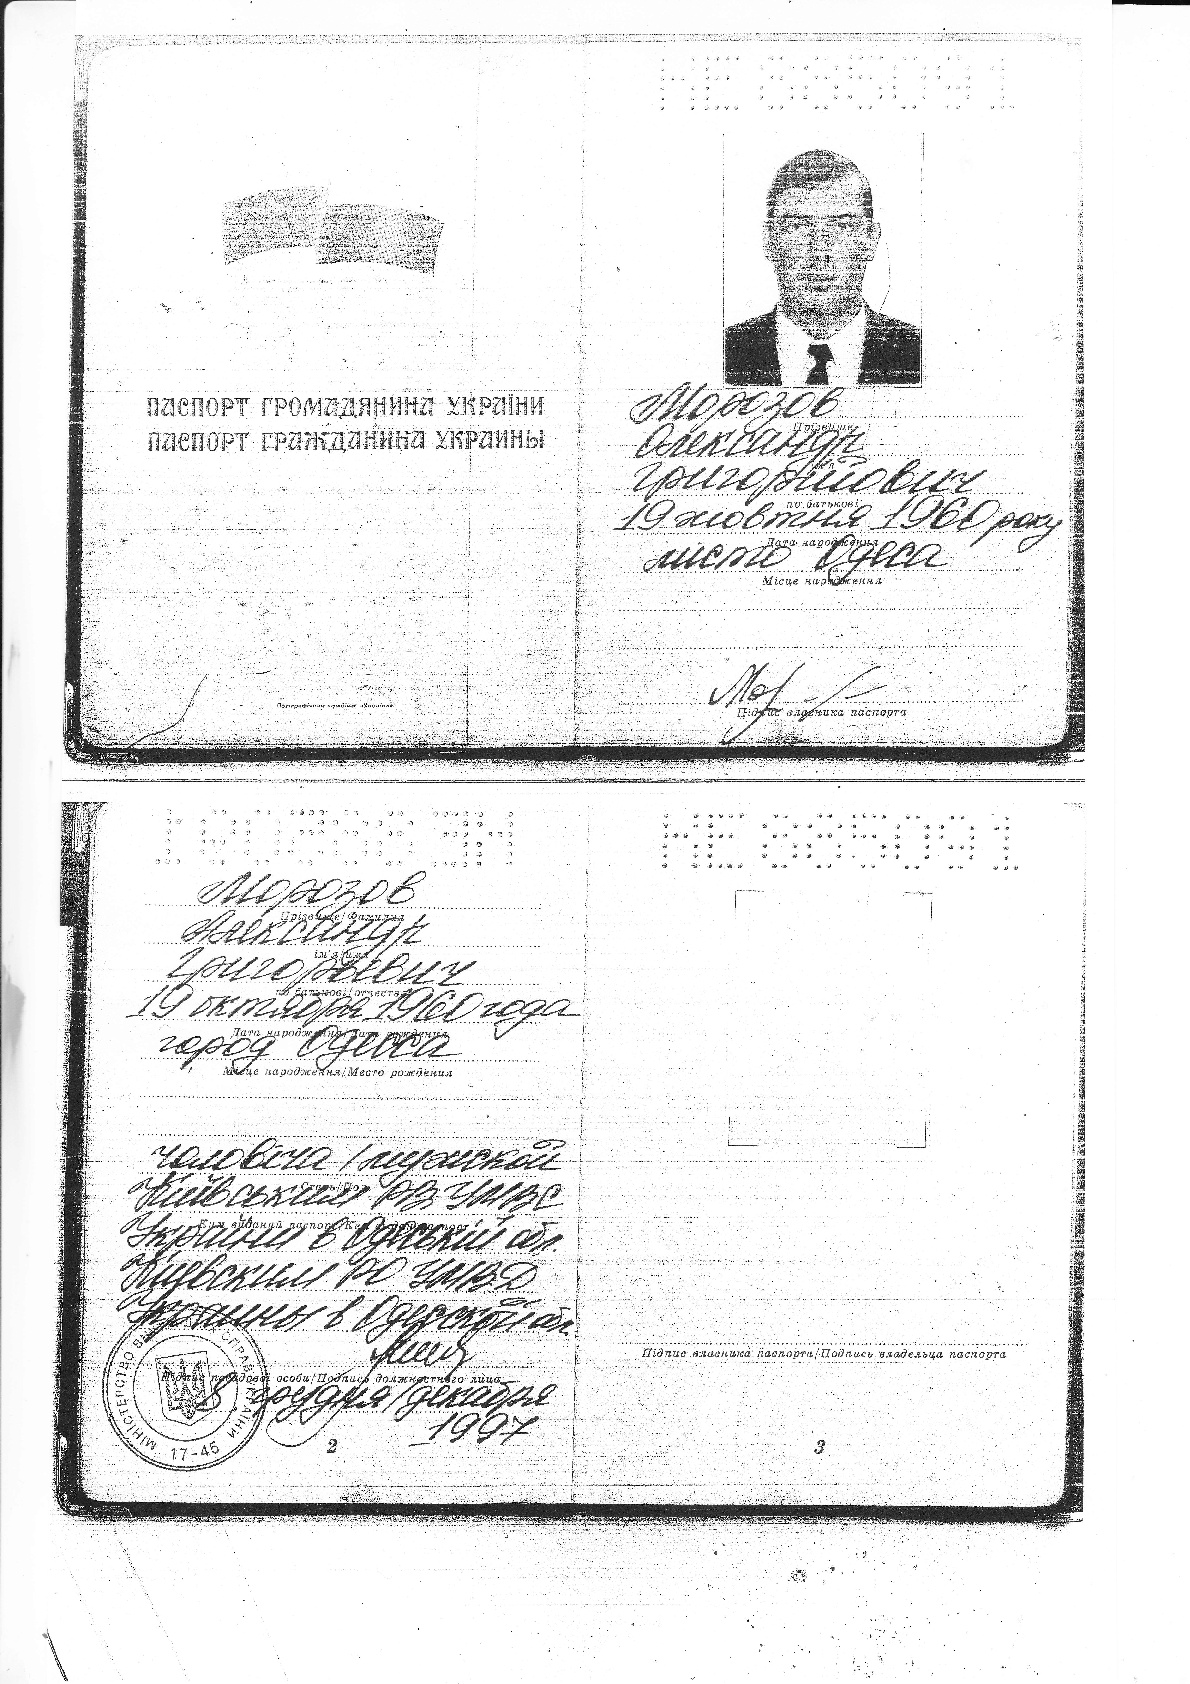 ПАСПОРТ ГРОМАДЯНИНА УКРАЇНИ
ПАСПОРТ ГРАЖДАНИНА УКРАИНЫ
Морозов
Прізвище
Олександр
Григорійович
по батькові
19 жовтня 1960 року
Дата народження
місто Одеса
Місце народження
Підпис власника паспорта
Морозов
Прізвище/Фамилия
Александр
ім'я/имя
Григорьевич
по батькові/отчество
19 октября 1960 года
Дата народження/Дата рождения
город Одесса
Місце народження/Место рождения
чоловіча / мужской
Стать/Пол
Київським РВ УМВС
Ким виданий паспорт/Кем
України в Одеській обл.
Киевским РО УМВД
Украины в Одесской обл.
Підпис посадової особи/Подпись должностного лица
8 грудня/декабря
1997
МІНІСТЕРСТВО СПРАВ УКРАЇНИ
17-45
2
Підпис власника паспорта/Подпись владельца паспорта
3